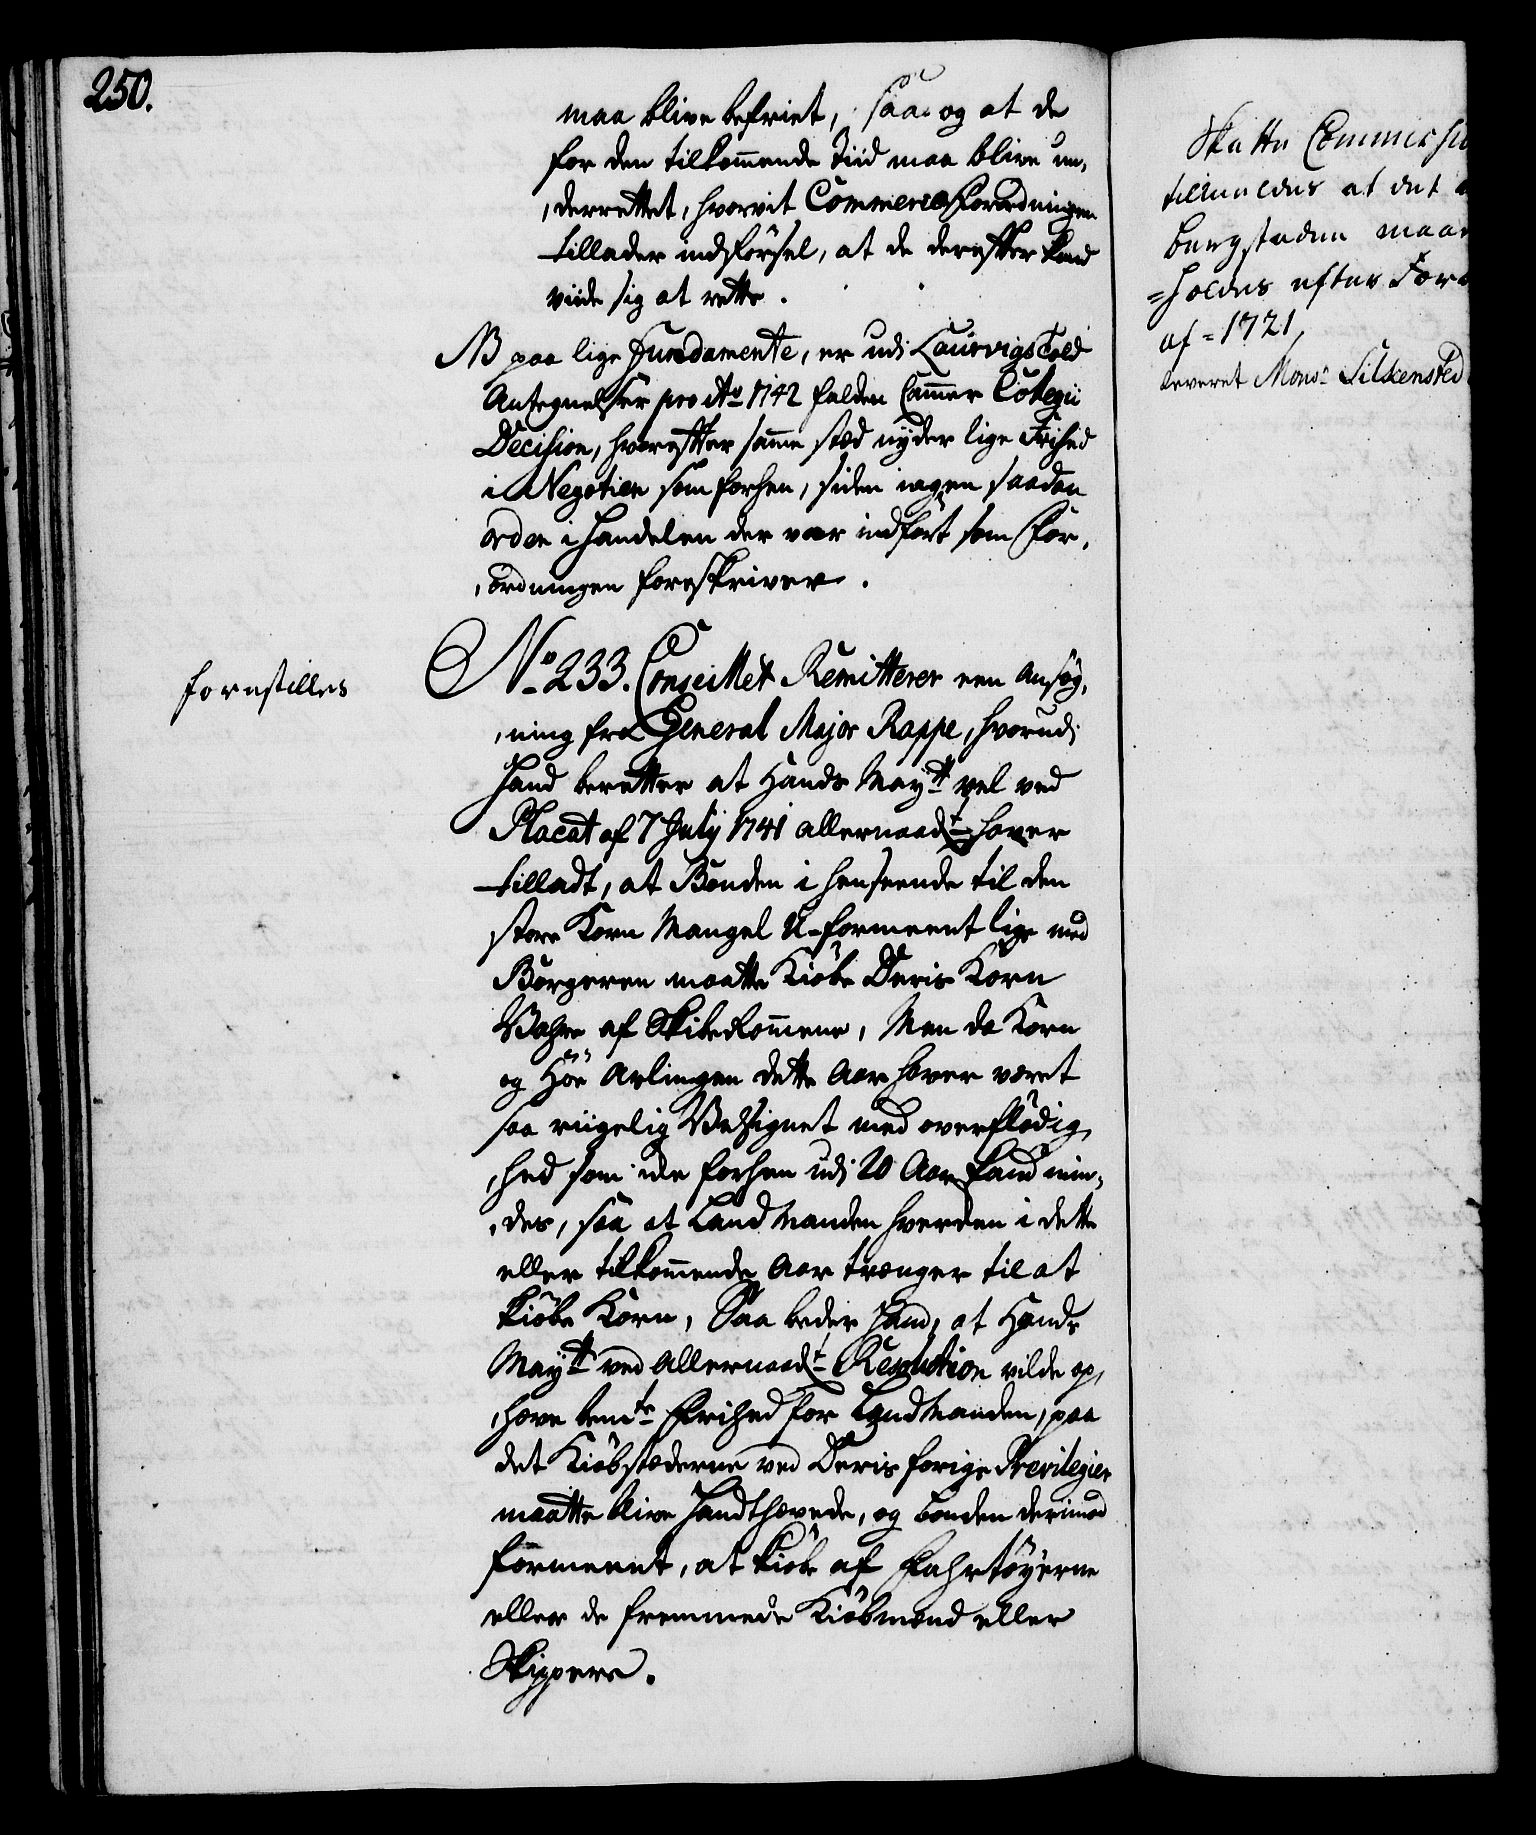 250.
maa blive befriet, saa og at de
for den tilkommende Tiid maa blive un,
,derrettet, hvorvit Commerce Forordningen
tillader indførsel, at de derefter kand
viide sig at rette.
NB paa lige Fundamente, er udi Laurvigs Told
Antegnelser pro Ao 1742 falden Cammer Collegii
Decision, hvorefter samme stæd nyder lige Frihed
i Negotien som forhen, siden ingen saadan
orden i Handelen der var indført som For,
,ordningen foreskriver.
forestilles
No 233. Conseillet Remitterer een Ansøg,
,ning fra General Major Rappe, hvorudi
Hand beretter at Hands Maytt vel ved
Placat af 7 July 1741 allernaadt haver
tilladt, at Bonden i henseende til den
store Korn Mangel U-formeent lige med
Borgeren maatte Kiøbe Deris Korn
Vahre af Skibe komne, Men da Korn
og Høe Avlingen dette Aar haver været
saa riigelig Velsignet med overflødig,
,hed som icke forhen udi 20 Aar kand min,
,des, saa at Land Manden hverken i dette
eller tilkommende Aar trænger til at
kiøbe Korn, Saa beder Hand, at Hands
Maytt ved Allernaadt Resolution vilde op,
,hæve bemte Frihed for Land Manden, paa
det Kiøbstæderne ved Deris forige Previlegier
maatte blive Handthævede, og bonden derimod
formeent, at kiøbe af Fahrtøyerne
eller de fremmede Kiøbmænd eller
Skippere.
Skatte Commissio
tilmeldes at det
bergstaden maae
=holdes efter Foro
af = 1721,
leveret Monsr Lilskensted